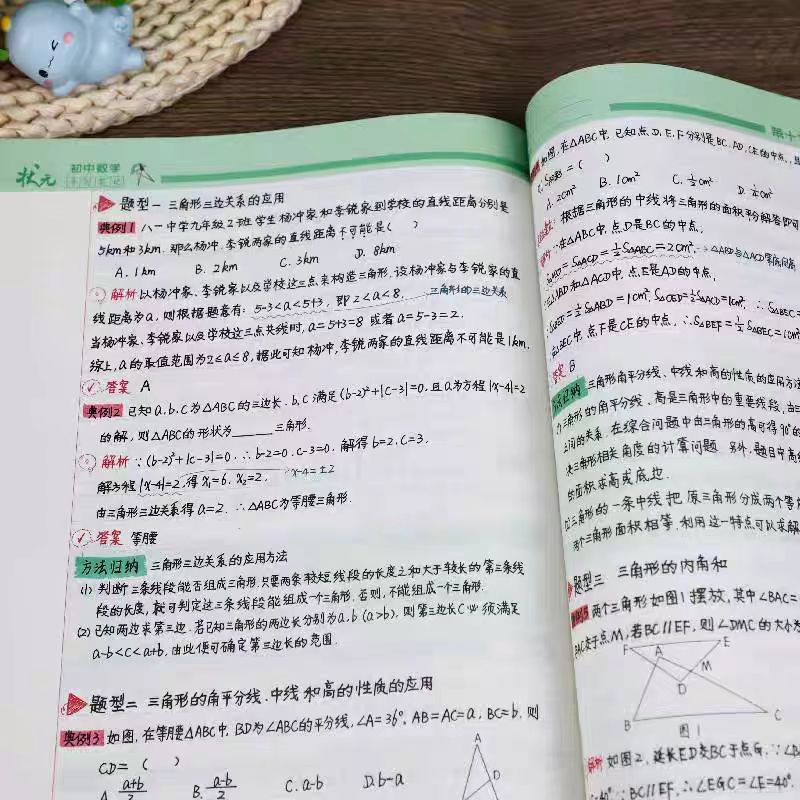 状元
初中数学
学霸笔记
题型一 三角形三边关系的应用
典例1 八一中学九年级2班学生杨冲家和李锐家到学校的直线距离分别是
5km和3km. 那么杨冲、李锐两家的直线距离不可能是( )
A. 1km B. 2km C. 3km D. 8km
解析 以杨冲家、李锐家以及学校这三点来构造三角形, 设杨冲家与李锐家的直
线距离为a, 则根据题意有: 5-3<a<5+3, 即2<a<8. 三角形的三边关系
当杨冲家、李锐家以及学校这三点共线时, a=5+3=8 或者 a=5-3=2.
综上, a的取值范围为2≤a≤8, 据此可知杨冲、李锐两家的直线距离不可能是1km.
答案 A
典例2 已知a.b.c为△ABC的三边长. b.c满足(b-2)²+|c-3|=0, 且a为方程|x-4|=2
的解, 则△ABC的形状为______三角形.
解析 ∵(b-2)²+|c-3|=0. ∴b-2=0. c-3=0. 解得b=2. c=3.
解方程|x-4|=2, 得x₁=6, x₂=2. x-4=±2
由三角形三边关系得a=2. ∴△ABC为等腰三角形.
答案 等腰
方法归纳 三角形三边关系的应用方法
(1) 判断三条线段能否组成三角形, 只要两条较短线段的长度之和大于较长的第三条线
段的长度, 就可判定这三条线段能组成一个三角形. 否则, 不能组成一个三角形.
(2) 已知两边求第三边. 若已知三角形的两边长分别为a.b (a>b), 则第三边长c必须满足
a-b<c<a+b. 由此便可确定第三边长的范围.
题型二 三角形的角平分线、中线和高的性质的应用
典例3 如图, 在等腰△ABC中, BD为∠ABC的平分线, ∠A=36°, AB=AC=a, BC=b, 则
CD=( )
A. (a+b)/2 B. (a-b)/2 C. a-b D. b-a
A
D
第十
如图, 在△ABC中, 已知点D.E.F分别是BC.AD.CE的中点, 且
=( )
A. 2cm² B. 1cm² C. ½cm² D. ¼cm²
根据三角形的中线将三角形的面积平分解答即可
在△ABC中, 点D是BC的中点,
=S△ACD=½S△ABC=2cm². △ABD与△ACD等底同高
△ABD和△ACD中, 点E是AD的中点,
=½S△ABD=1cm², S△CED=½S△ACD=1cm², ∴S△BEC=
△BEC中, 点F是CE的中点, ∴S△BEF=½S△BEC=1cm
答案 B
方法归纳 三角形角平分线、中线和高的性质的应用方法
(1) 三角形的角平分线、高是三角形中的重要线段, 由三
之间的关系. 在综合问题中由三角形的高可得90°的
决三角形相关角度的计算问题. 另外, 题目中高线
的面积求高或底边.
(2) 三角形的一条中线把原三角形分成两个等
两个三角形面积相等. 利用这一特点可以求解
题型三 三角形的内角和
典例5 两个三角形如图1摆放, 其中∠BAC=
BAC交于点M, 若BC∥EF, 则∠DMC的大小为
F
A
E
M
D
B
C
图1
解析 如图2, 延长ED交BC于点G. ∵∠BA
=40°. ∵BC∥EF, ∴∠EGC=∠E=40°.